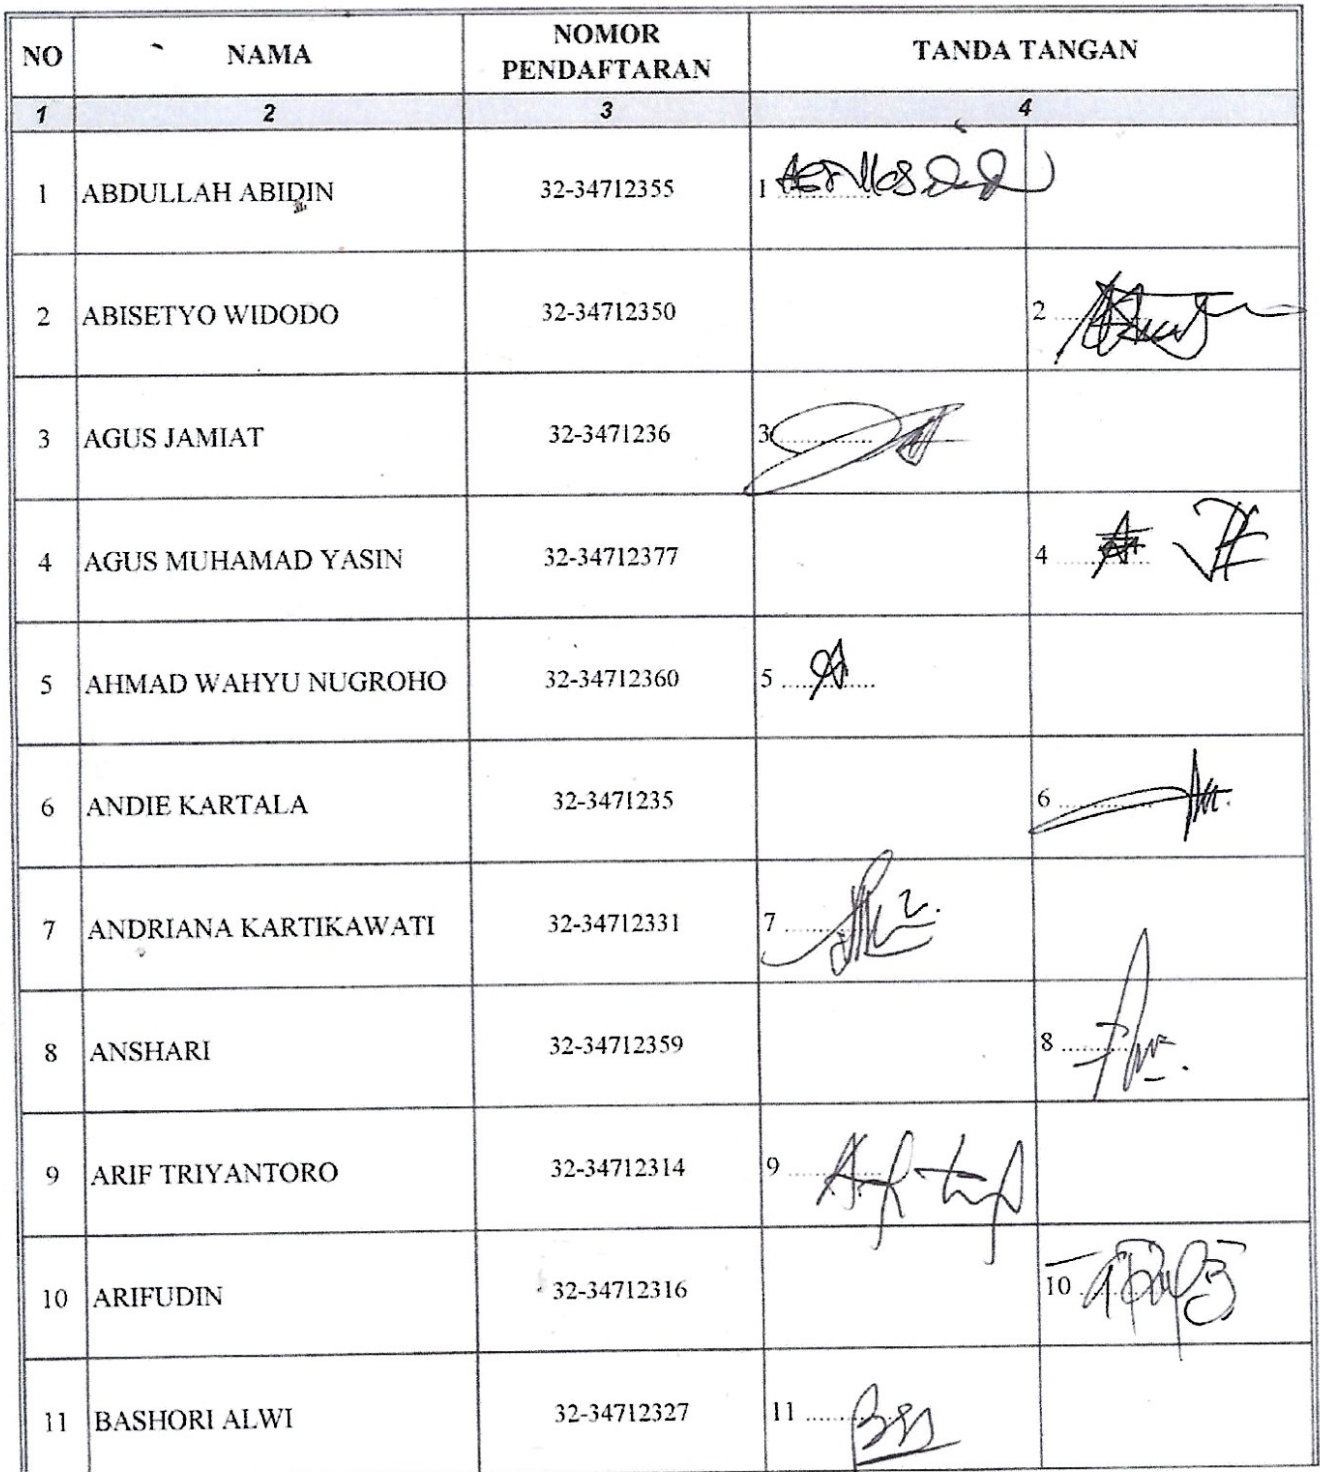 NO NAMA NOMOR PENDAFTARAN TANDA TANGAN
1 2 3 4
1 ABDULLAH ABIDIN 32-34712355 1 ..............
2 ABISETYO WIDODO 32-34712350 2 ..............
3 AGUS JAMIAT 32-3471236 3 ..............
4 AGUS MUHAMAD YASIN 32-34712377 4 ..............
5 AHMAD WAHYU NUGROHO 32-34712360 5 ..............
6 ANDIE KARTALA 32-3471235 6 ..............
7 ANDRIANA KARTIKAWATI 32-34712331 7 ..............
8 ANSHARI 32-34712359 8 ..............
9 ARIF TRIYANTORO 32-34712314 9 ..............
10 ARIFUDIN 32-34712316 10 ..............
11 BASHORI ALWI 32-34712327 11 ..............